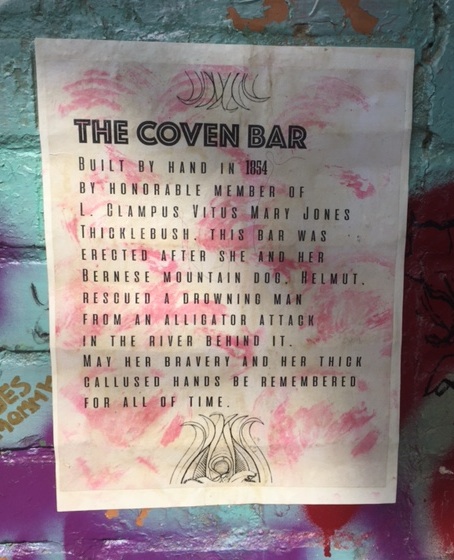 THE COVEN BAR
BUILT BY HAND IN 1854
BY HONORABLE MEMBER OF
L. CLAMPUS VITUS MARY JONES
THICKLEBUSH, THIS BAR WAS
ERECTED AFTER SHE AND HER
BERNESE MOUNTAIN DOG, HELMUT,
RESCUED A DROWNING MAN
FROM AN ALLIGATOR ATTACK
IN THE RIVER BEHIND IT.
MAY HER BRAVERY AND HER THICK
CALLUSED HANDS BE REMEMBERED
FOR ALL OF TIME.